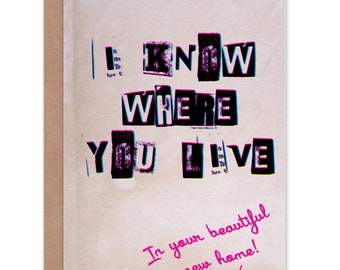 I KNOW
WHERE
YOU LIVE
In your beautiful
new home!